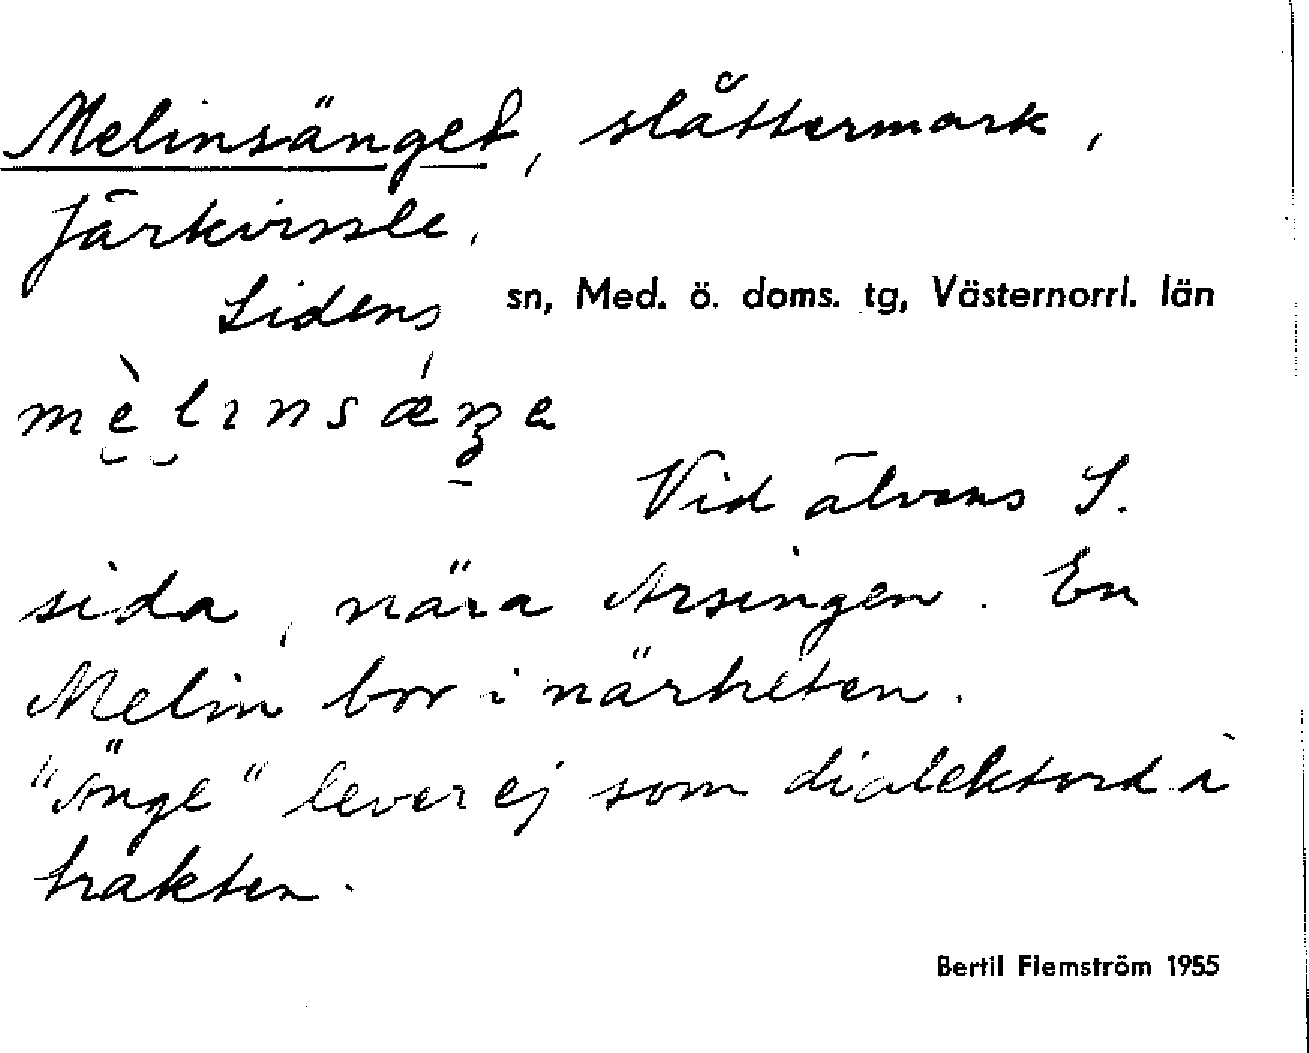 Melinsänget, slåttermark,
Järkvissle.
Lidens sn, Med. ö. doms. tg, Västernorrl. län
Vid älvens S.
sida, nära Arsingen. En
Melin bor i närheten.
"Änge" lever ej som dialektord i
trakten.
Bertil Flemström 1955